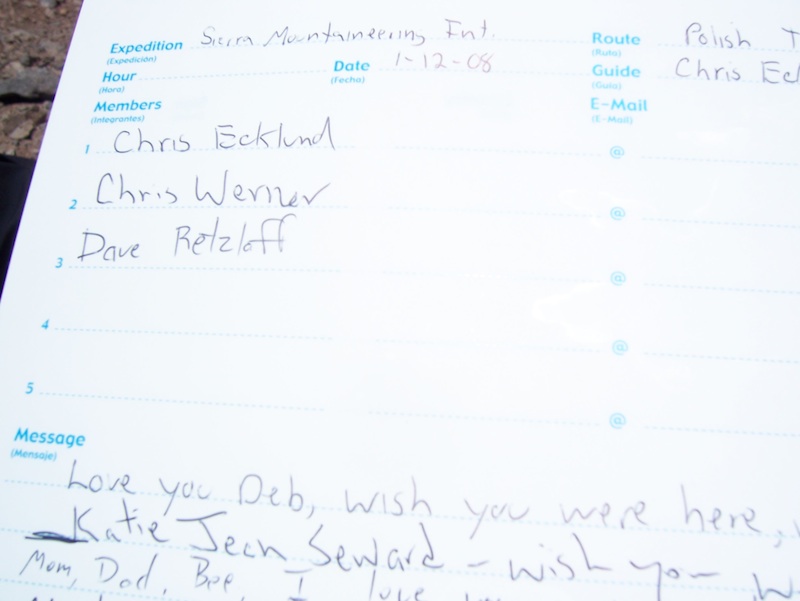 Expedition Sierra Mountaineering Int. Route Polish T
(Expedición) (Ruta)
Hour Date 1-12-08 Guide Chris Ecl
(Hora) (Fecha) (Guía)
Members E-Mail
(Integrantes) (E-Mail)
1 Chris Ecklund @
2 Chris Werner @
3 Dave Retzloff @
4 @
5 @
Message
(Mensaje)
Love you Deb, wish you were here,
Katie Jean Seward - wish you w
Mom, Dad, Bee, I love